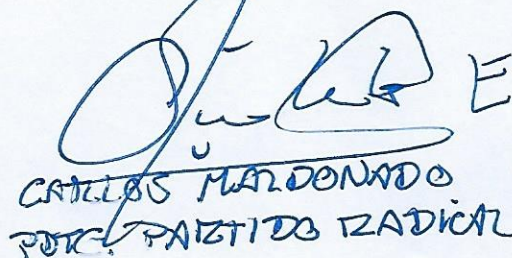 E
CARLOS MALDONADO
PDTE. PARTIDO RADICAL